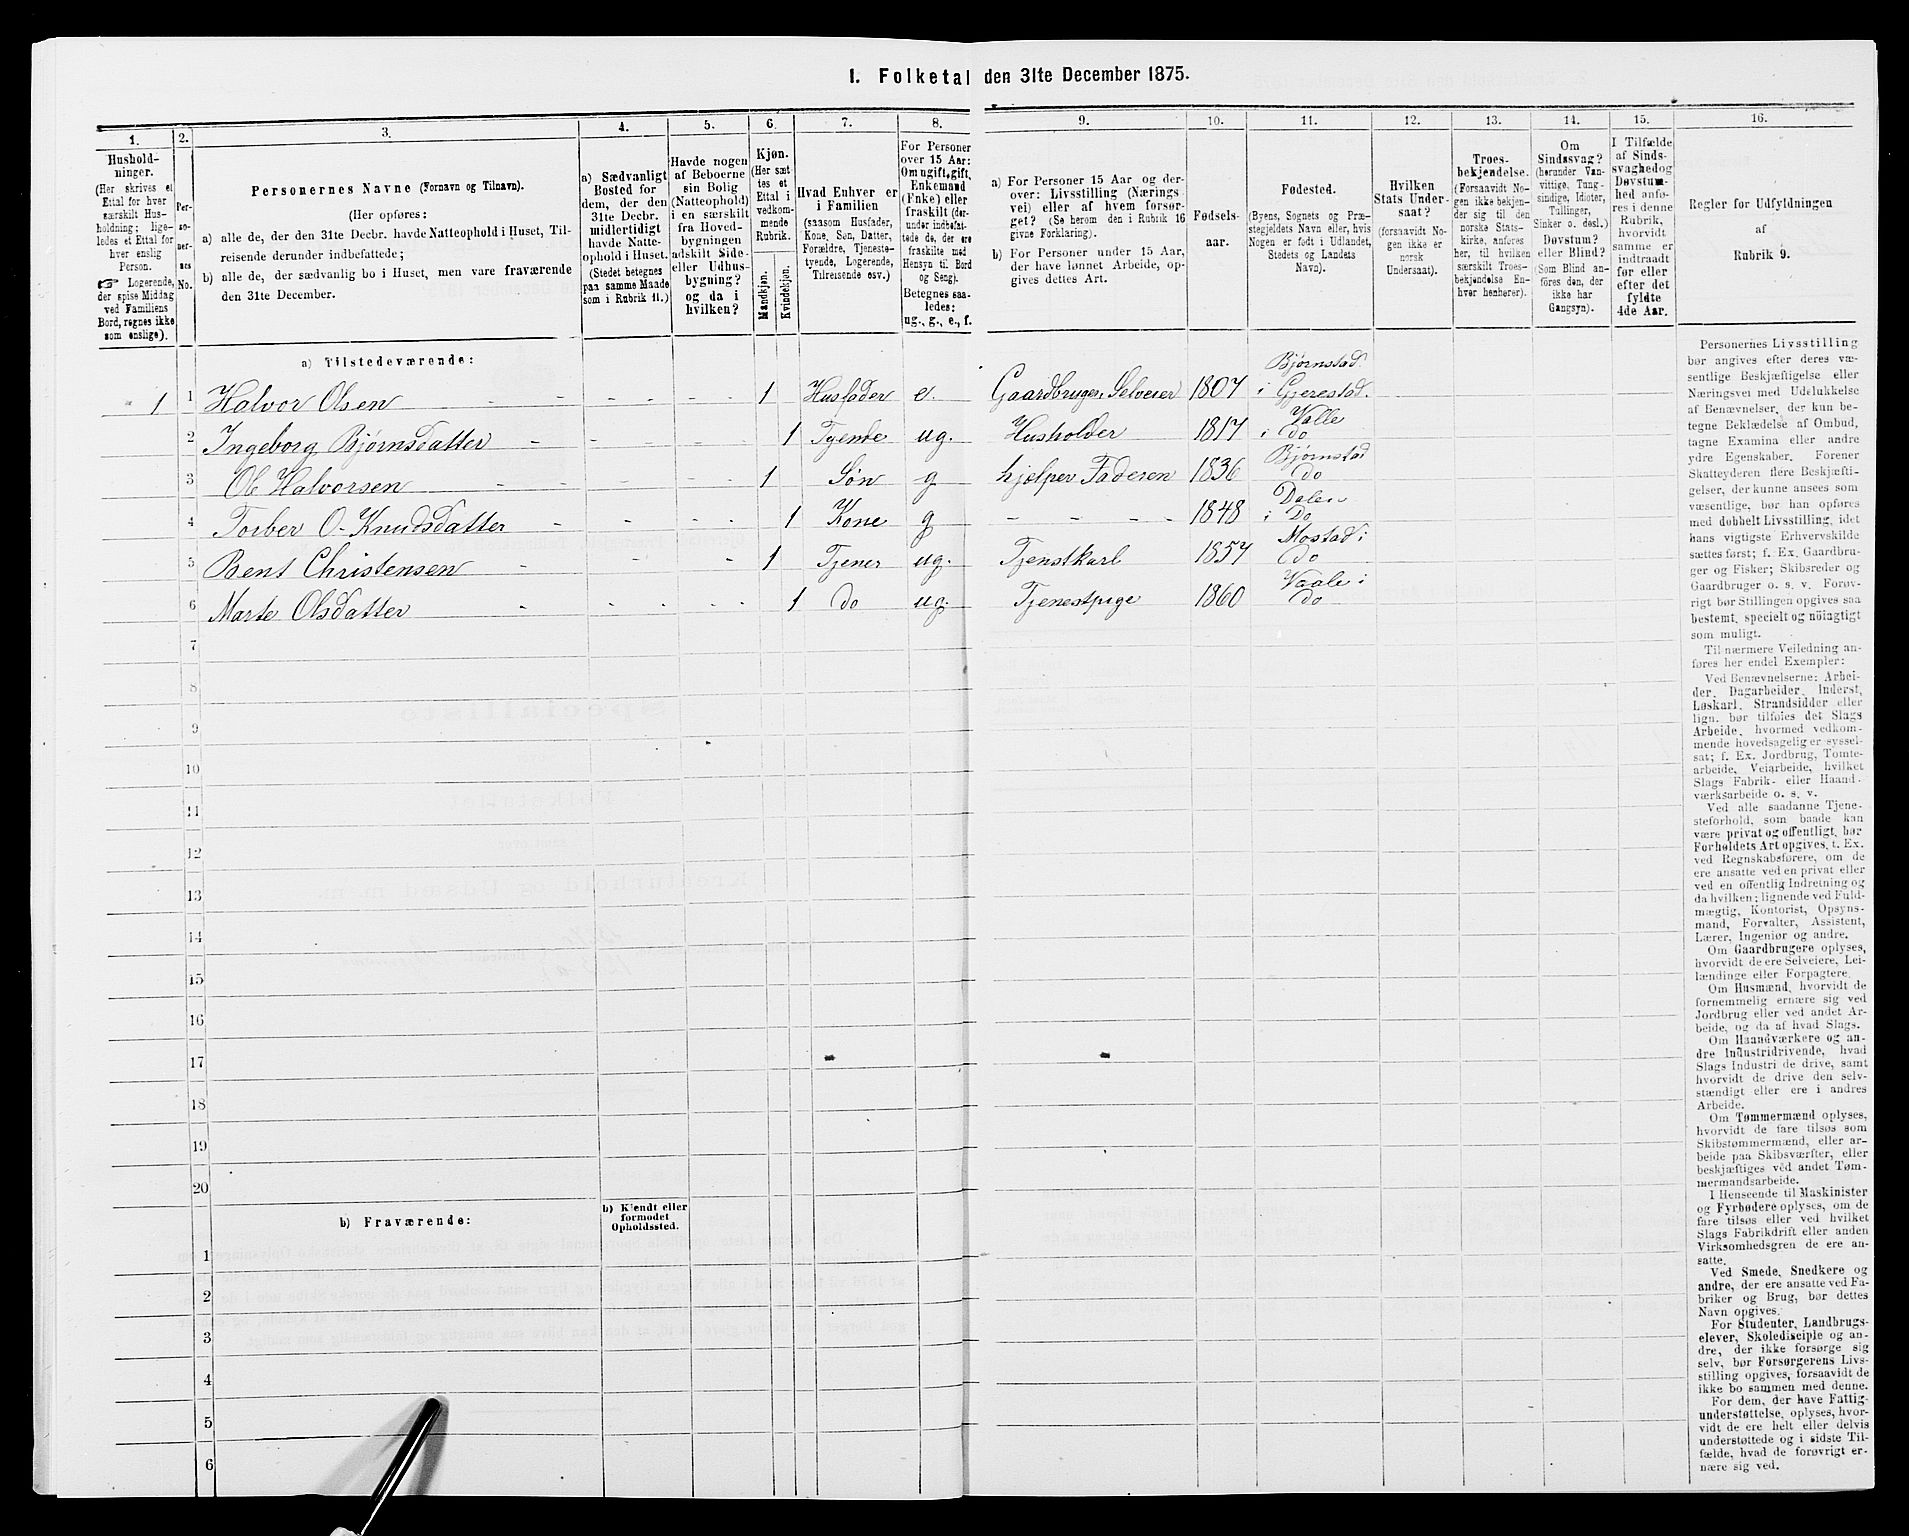 I. Folketal den 31te December 1875.
1.
2.
3.
4.
5.
6.
7.
8.
9.
10.
11.
12.
13.
14.
15.
16.
Hushold-
ninger.
(Her skrives et
Ettal for hver
særskilt Hus-
holdning; lige-
ledes et Ettal for
hver enslig
Person.
☞ Logerende,
der spise Middag
ved Familiens
Bord, regnes ikke
som enslige).
Per-
so-
ner-
nes
No.
Personernes Navne (Fornavn og Tilnavn).
(Her opføres:
a) alle de, der den 31te Decbr. havde Natteophold i Huset, Til-
reisende derunder indbefattede;
b) alle de, der sædvanlig bo i Huset, men vare fraværende
den 31te December.
a) Sædvanligt
Bosted for
dem, der den
31te Decbr.
midlertidigt
havde Natte-
ophold i Huset.
(Stedet betegnes
paa samme Maade
som i Rubrik 11.)
Havde nogen
af Beboerne
sin Bolig
(Natteophold)
i en særskilt
fra Hoved-
bygningen
adskilt Side-
eller Udhus-
bygning?
og da i
hvilken?
Kjøn.
(Her sæt-
tes et
Ettal i
vedkom-
mende
Rubrik.
Mandkjøn.
Kvindekjøn.
Hvad Enhver er
i Familien
(saasom Husfader,
Kone, Søn, Datter,
Forældre, Tjeneste-
tyende, Logerende,
Tilreisende osv.)
For Personer
over 15 Aar:
Om ugift, gift,
Enkemand
(Enke) eller
fraskilt (der-
under indbefat-
tede de, der ere
fraskilte med
Hensyn til Bord
og Seng).
Betegnes saa-
ledes:
ug., g., e., f.
a) For Personer 15 Aar og der-
over: Livsstilling (Nærings
vei) eller af hvem forsør-
get? (Se herom den i Rubrik 16
givne Forklaring).
b) For Personer under 15 Aar,
der have lønnet Arbeide, op-
gives dettes Art.
Fødsels-
aar.
Fødested.
(Byens, Sognets og Præ-
stegjeldets Navn eller, hvis
Nogen er født i Udlandet,
Stedets og Landets
Navn).
Hvilken
Stats Under-
saat?
(forsaavidt No-
gen ikke er
norsk
Undersaat).
Troes-
bekjendelse.
(Forsaavidt No-
gen ikke bekjen-
der sig til den
norske Stats-
kirke, anføres
her, til hvilken
særskilt Troes-
bekjendelse En-
hver henhører).
Om
Sindssvag?
(herunder Van-
vittige, Tung-
sindige, Idioter,
Tullinger,
Sinker o. desl.)
Døvstum?
eller Blind?
(Som Blind an-
føres den, der
ikke har
Gangsyn).
I Tilfælde
af Sinds-
svaghed og
Døvstum-
hed anfø-
res i denne
Rubrik,
hvorvidt
samme er
indtraadt
før eller
efter det
fyldte
4de Aar.
Regler for Udfyldningen
af
Rubrik 9.
a) Tilstedeværende:
1 1 Halvor Olsen 1 Husfader e. Gaardbruger, Selveier 1807 Bjørnstad i Gjerestad.
2 Ingeborg Bjørnsdatter 1 Tyende ug. Husholder 1817 Valle i do
3 Ole Halvorsen 1 Søn g hjelper Faderen 1836 Bjørnstad do
4 Torber O- Knudsdatter 1 Kone g 1848 Dalen i Do
5 Bent Christensen 1 Tjener ug. Tjenstkarl 1857 Mostad i do
6 Marte Olsdatter 1 do ug. Tjenestpige 1860 Vaale i do
7
8
9
10
11
12
13
14
15
16
17
18
19
20
b) Fraværende:
b) Kjendt eller
formodet
Opholdssted.
1
2
3
4
5
6
Personernes Livsstilling
bør angives efter deres væ-
sentlige Beskjæftigelse eller
Næringsvei med Udelukkelse
af Benævnelser, der kun be-
tegne Beklædelse af Ombud,
tagne Examina eller andre
ydre Egenskaber. Forener
Skatteyderen flere Beskjæfti-
gelser, der kunne ansees som
væsentlige, bør han opføres
med dobbelt Livsstilling, idet
hans vigtigste Erhvervskilde
sættes først; f. Ex. Gaardbru-
ger og Fisker; Skibsreder og
Gaardbruger o. s. v. Forøv-
rigt bør Stillingen opgives saa
bestemt, specielt og nøiagtigt
som muligt.
Til nærmere Veiledning an-
føres her endel Exempler:
Ved Benævnelserne: Arbei-
der, Dagarbeider, Inderst,
Løskarl, Strandsidder eller
lign. bør tilføies det Slags
Arbeide, hvormed vedkom-
mende hovedsagelig er syssel-
sat; f. Ex. Jordbrug, Tomte-
arbeide, Veiarbeide, hvilket
Slags Fabrik- eller Haand-
værksarbeide o. s. v.
Ved alle saadanne Tjene-
steforhold, som baade kan
være privat og offentligt, bør
Forholdets Art opgives, t. Ex.
ved Regnskabsførere, om de
ere ansatte ved en privat eller
ved en offentlig Indretning og
da hvilken; lignende ved Fuld-
mægtig, Kontorist, Opsyns-
mand, Forvalter, Assistent,
Lærer, Ingeniør og andre.
Om Gaardbrugere oplyses,
hvorvidt de ere Selveiere, Lei-
lændinge eller Forpagtere.
Om Husmænd, hvorvidt de
fornemmelig ernære sig ved
Jordbrug eller ved andet Ar-
beide, og da af hvad Slags.
Om Haandværkere og an-
dre Industridrivende, hvad
Slags Industri de drive, samt
hvorvidt de drive den selv-
stændigt eller ere i andres
Arbeide.
Om Tømmermænd oplyses,
hvorvidt de fare tilsøs som
Skibstømmermænd, eller ar-
beide paa Skibsværfter, eller
beskjæftiges ved andet Tøm-
mermandsarbeide.
I Henseende til Maskinister
og Fyrbødere oplyses, om de
fare tilsøs eller ved hvilket
Slags Fabrikdrift eller anden
Virksomhedsgren de ere an-
satte.
Ved Smede, Snedkere og
andre, der ere ansatte ved Fa-
briker og Brug, bør dettes
Navn opgives.
For Studenter, Landbrugs-
elever, Skoledisciple og an-
dre, der ikke forsørge sig
selv, bør Forsørgerens Livs-
stilling opgives, forsaavidt de
ikke bo sammen med denne.
For dem, der have Fattig-
understøttelse, oplyses, hvor-
vidt de ere helt eller delvis
understøttede og i sidste Til-
fælde, hvad de forøvrigt er-
nære sig ved.